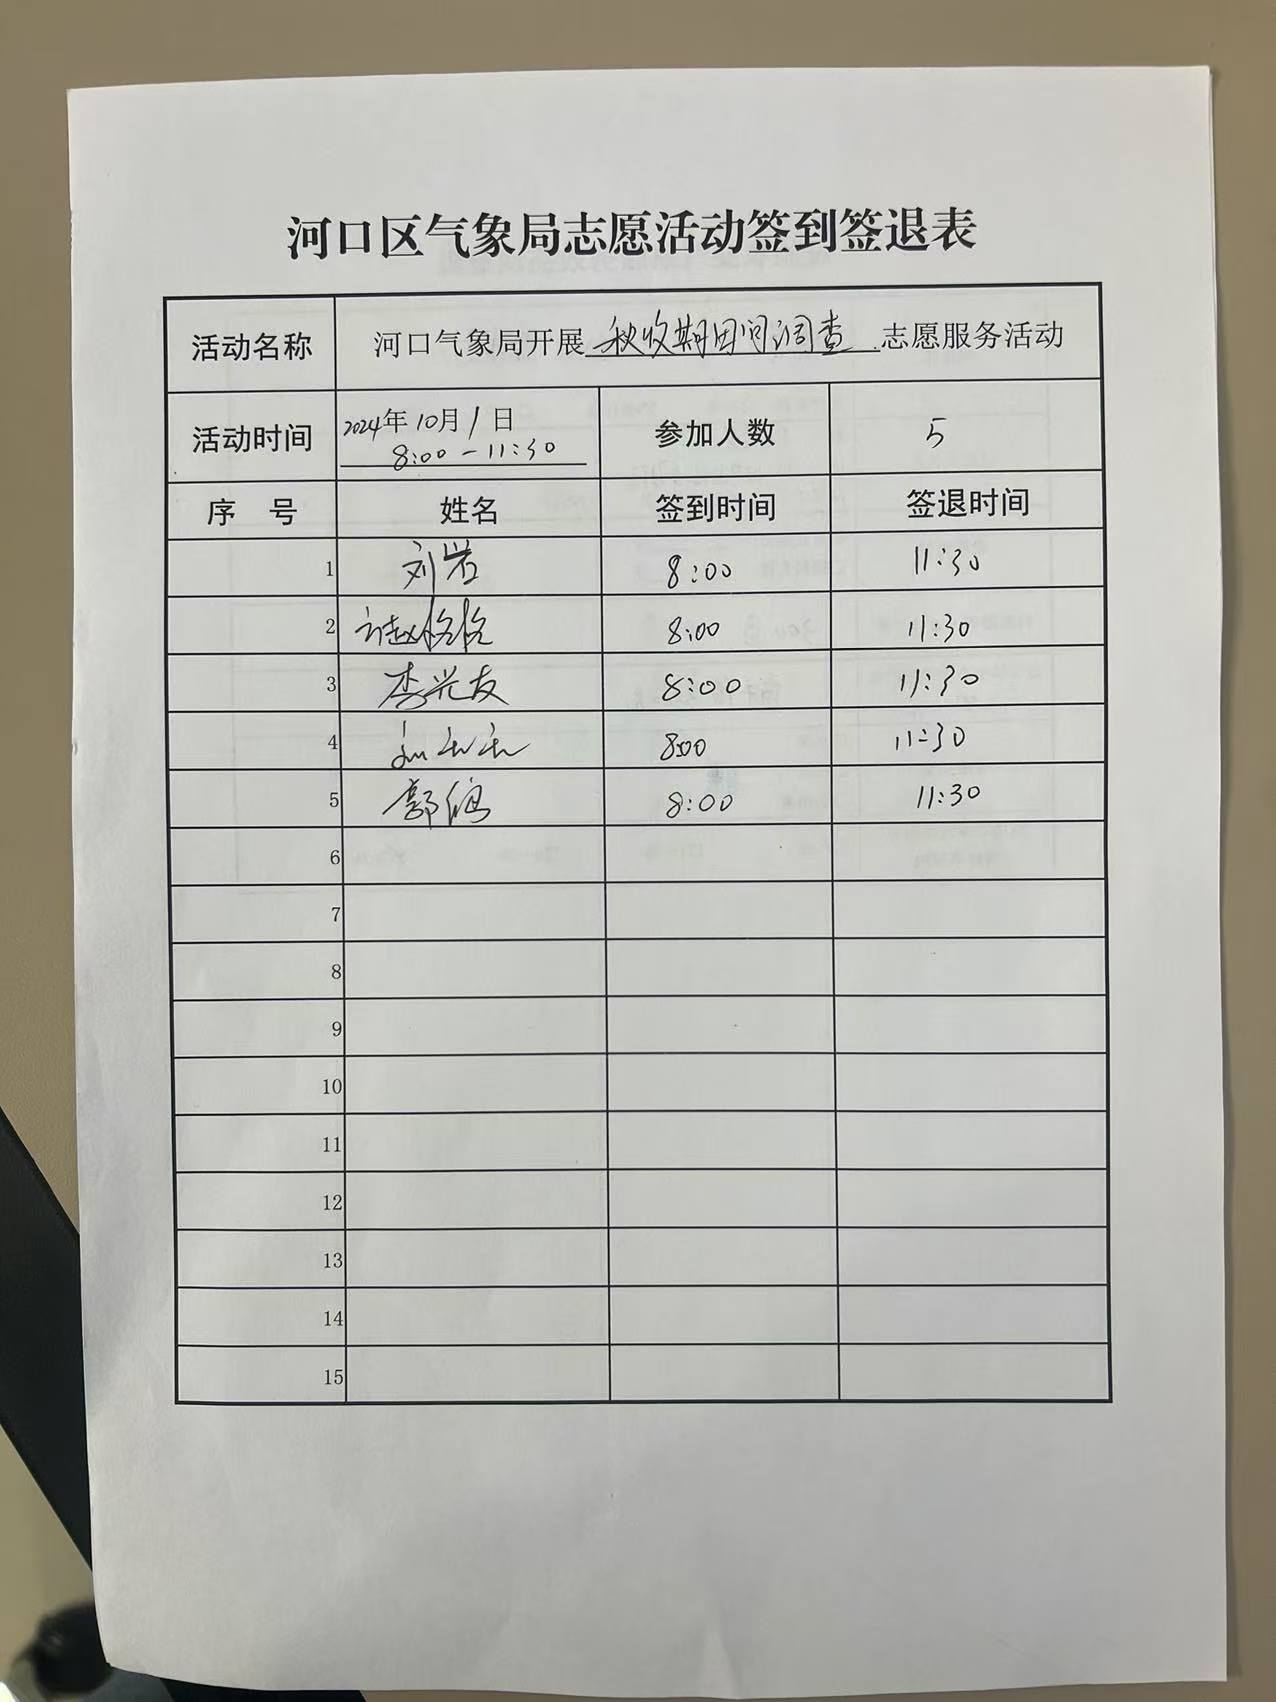 河口区气象局志愿活动签到签退表
活动名称 河口气象局开展 秋收期田间调查 志愿服务活动
活动时间 2024年10月1日 参加人数 5
8:00-11:30
序 号 姓名 签到时间 签退时间
1 刘岩 8:00 11:30
2 8:00 11:30
3 李兴友 8:00 11:30
4 8:00 11:30
5 郭 8:00 11:30
6
7
8
9
10
11
12
13
14
15